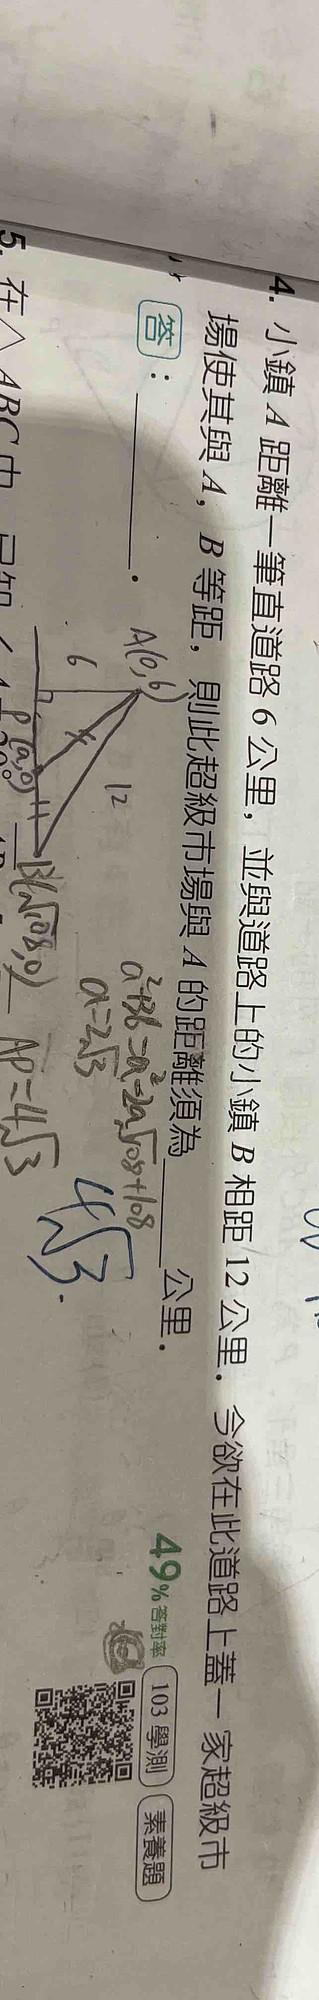 4. 小鎮 A 距離一筆直道路 6 公里，並與道路上的小鎮 B 相距 12 公里．今欲在此道路上蓋一家超級市
場使其與 A，B 等距，則此超級市場與 A 的距離須為______公里．
49% 答對率 103 學測 素養題
答：______．
A(0,6)
6
12
P(a,0)
B(√108,0)
a²+36=a²-2a√108+108
a=2√3
AP=4√3
4√3.
5. 在△ABC中，已知